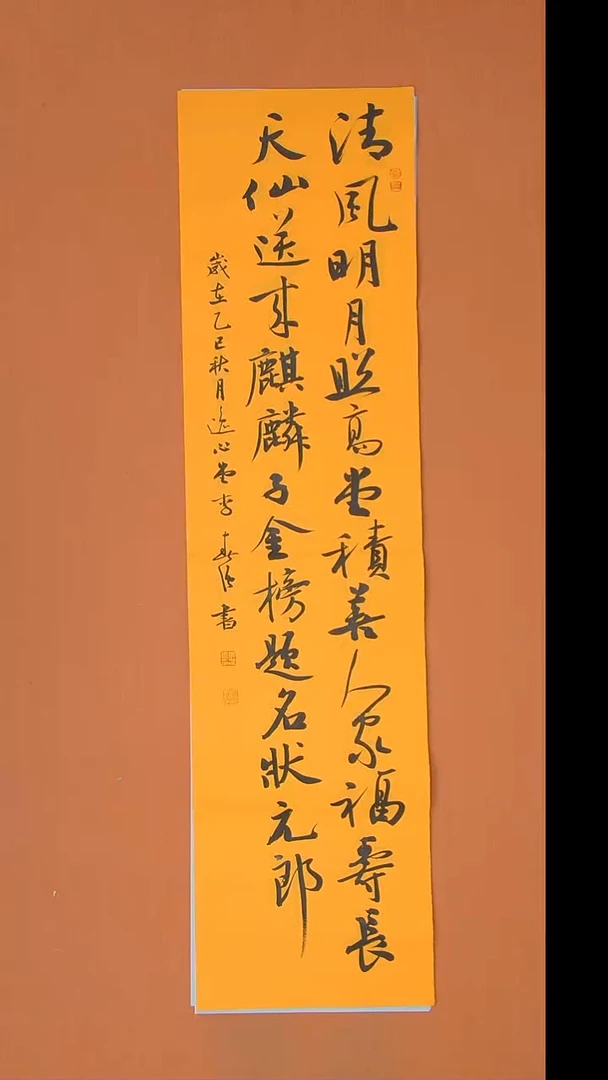 清風明月照高堂積善人家福壽長
天仙送來麒麟子金榜題名狀元郎
歲在乙巳秋月逸心堂李春書